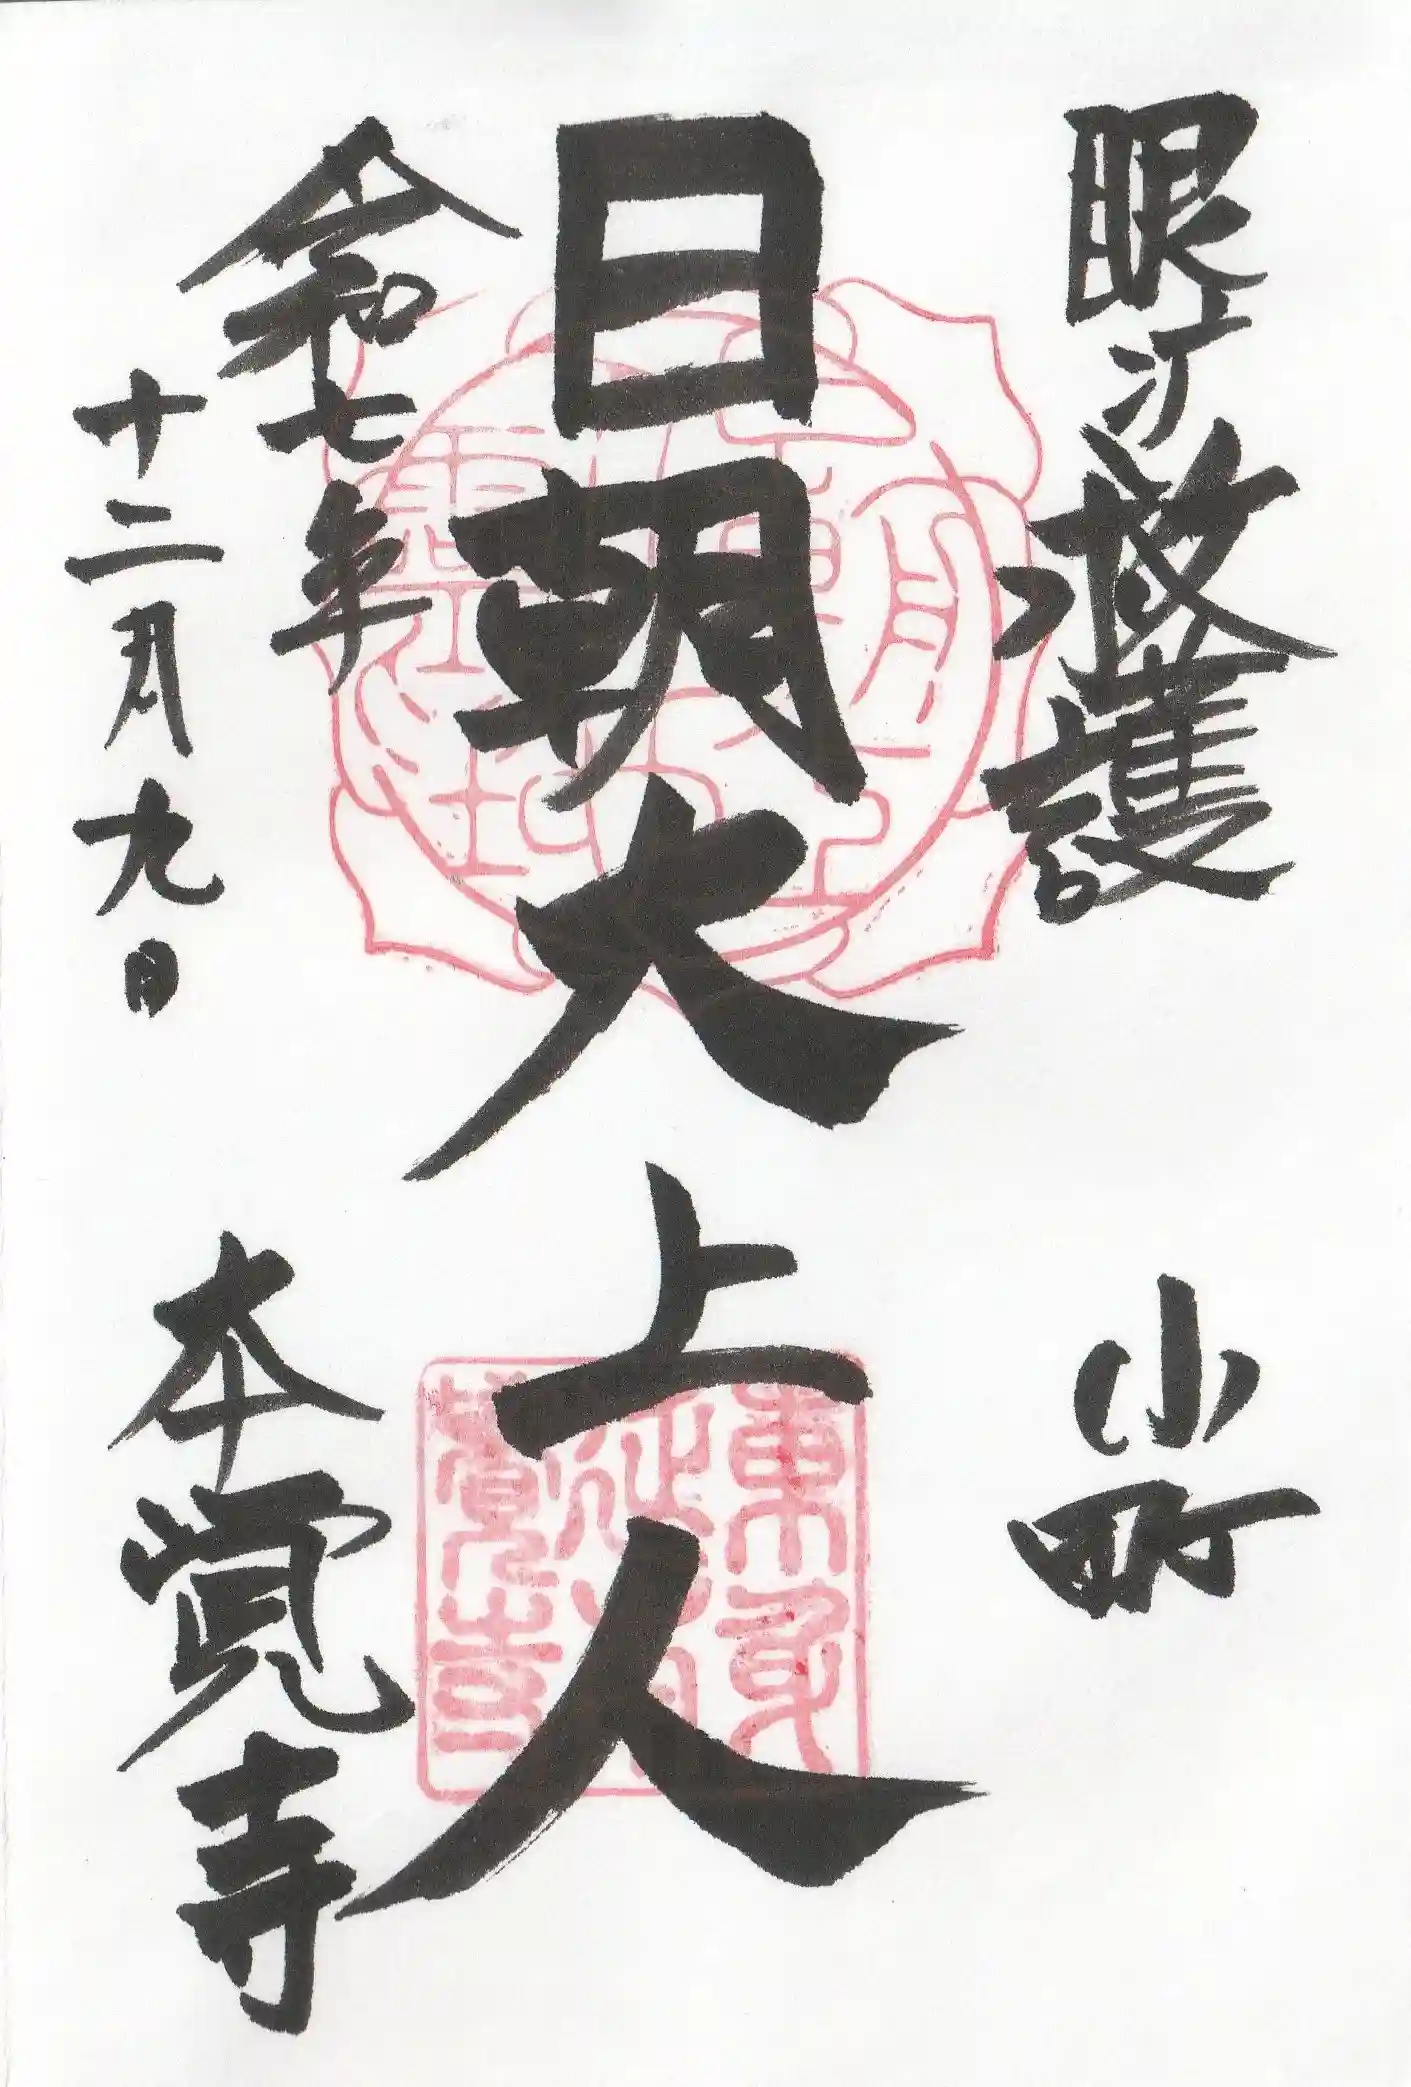 眼病救護
小町
日朝大上人
令和七年
十二月九日
本覚寺